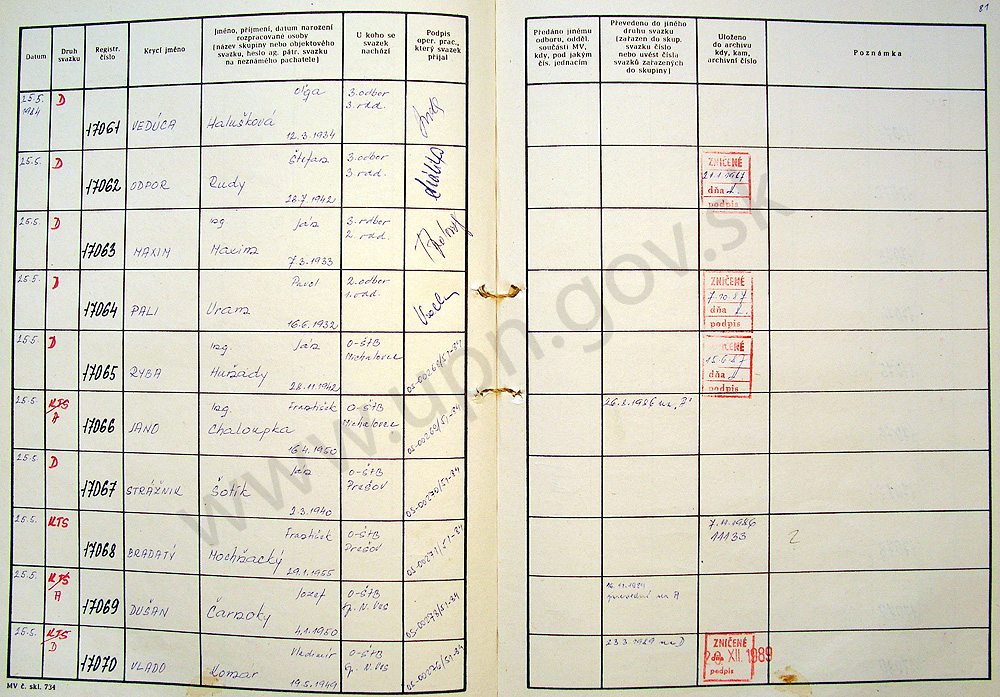 81
Datum
Druh svazku
Registr. číslo
Krycí jméno
Jméno, příjmení, datum narození
rozpracované osoby
(název skupiny nebo objektového
svazku, heslo ag. pátr. svazku
na neznámého pachatele)
U koho se
svazek
nachází
Podpis
oper. prac.,
který svazek
přijal
Předáno jinému
odboru, odděl.
součásti MV,
kdy, pod jakým
čís. jednacím
Převedeno do jiného
druhu svazku
(zařazen do skup.
svazku číslo
nebo uvést čísla
svazků zařazených
do skupiny)
Uloženo
do archivu
kdy, kam,
archivní číslo
Poznámka
25.5. 1984 D 17061 VEDÚCA Oľga Halušková 12.3.1934 3.odbor 3.odd.
25.5. D 17062 ODPOR Štefan Rudy 28.7.1942 3.odbor 3.odd.
ZNIČENÉ
dňa
podpis
25.5. D 17063 MAXIM Ing. Ján Maxim 7.3.1933 3.odbor 2.odd.
25.5. D 17064 PALI Pavel Uram 16.6.1932 2.odbor 1.odd.
ZNIČENÉ
7.10.87
dňa
podpis
25.5. D 17065 RYBA Ing. Ján Huňady 28.11.1942 O-ŠtB Michalovce OS-00268/51-84
ZNIČENÉ
15.6.87
dňa
podpis
25.5. KTS A 17066 JANO Ing. František Chaloupka 16.4.1950 O-ŠtB Michalovce OS-00269/51-84 26.8.1986 na "A"
25.5. D 17067 STRÁŽNIK Ján Šotík 2.3.1940 O-ŠtB Prešov OS-00270/51-84
25.5. KTS 17068 BRADATÝ František Mochňacký 29.1.1955 O-ŠtB Prešov OS-00271/51-84 7.11.1986 11133 2
25.5. KTS A 17069 DUŠAN Jozef Čarnoky 4.1.1950 O-ŠtB Sp. N. Ves OS-00273/51-84 na A
25.5. KTS D 17070 VLADO Vladimír Komár 19.5.1949 O-ŠtB Sp. N. Ves 23.3.1989 na D
ZNIČENÉ
dňa XII. 1989
podpis
MV č. skl. 734
www.upn.gov.sk